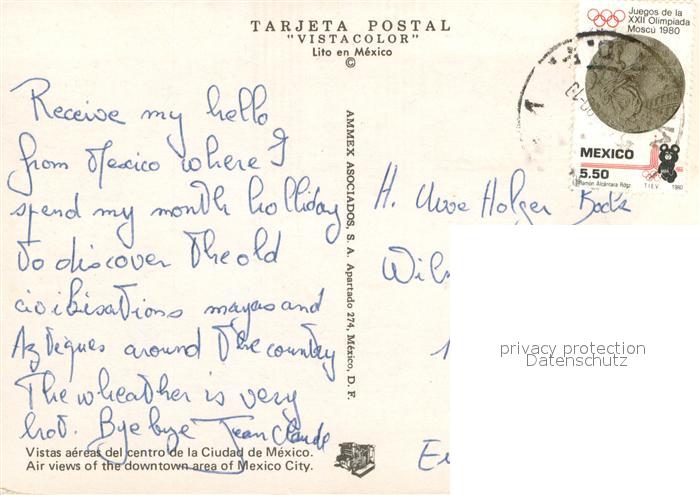 TARJETA POSTAL
"VISTACOLOR"
Lito en México
©
Juegos de la
XXII Olimpiada
Moscú 1980
MEXICO
5.50
Ramon Alcántara Rdgz. T.I.E.V. 1980
Receive my hello
from Mexico where I
spend my month holliday
to discover the old
civilisations mayas and
Aztèques around the country
The wheather is very
hot. Bye bye Jean Claude
AMMEX ASOCIADOS, S. A. Apartado 274, México, D. F.
H. Uwe Holger Bock
Wil
privacy protection
Datenschutz
Vistas aéreas del centro de la Ciudad de México.
Air views of the downtown area of Mexico City.